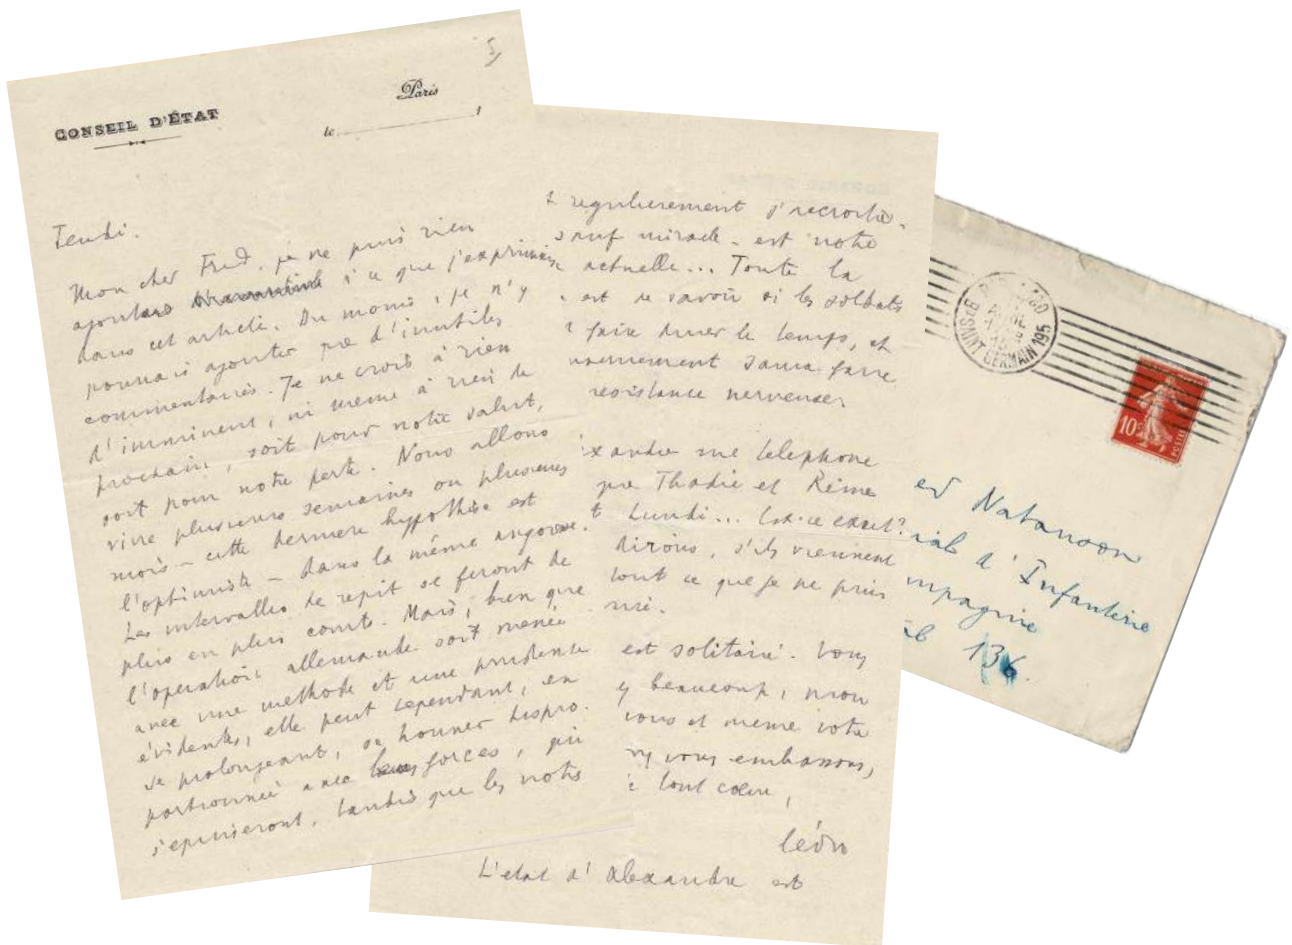 CONSEIL D'ÉTAT
Paris
le 1
Mon cher Fred, je ne puis rien
ajouter à ce que j'exprimais
dans cet article. Du moins, je n'y
pourrais ajouter que d'inutiles
commentaires. Je ne crois à rien
d'imminent, ni meme à rien de
prochain, soit pour notre salut,
soit pour notre perte. Nous allons
vivre plusieurs semaines ou plusieurs
mois – cette derniere hypothèse est
l'optimiste – dans la même angoisse.
Les intervalles de repit se feront de
plus en plus courts. Mais, bien que
l'operation allemande soit menée
avec une methode et une prudente
évidentes, elle peut cependant, en
se prolongeant, se trouver dispro-
portionnée avec leurs forces, qui
s'epuiseront, tandis que les notres
regulierement s'accroitre.
sauf miracle – est notre
actuelle... Toute la
est de savoir si les soldats
faire durer le temps, et
saura faire
resistance nerveuse.
xandre me telephone
que Thadée et Reine
t Lundi... Est-ce exact?
dirons, s'ils viennent
tout ce que je ne puis
est solitaire. Vous
y beaucoup, mon
vous et meme votre
vous embrassons,
tout cœur,
Léon
L'etat d'Alexandre est
BD ST GERMAIN 195
10c
POSTES
ed Natanson
d'Infanterie
mpagnie
136.